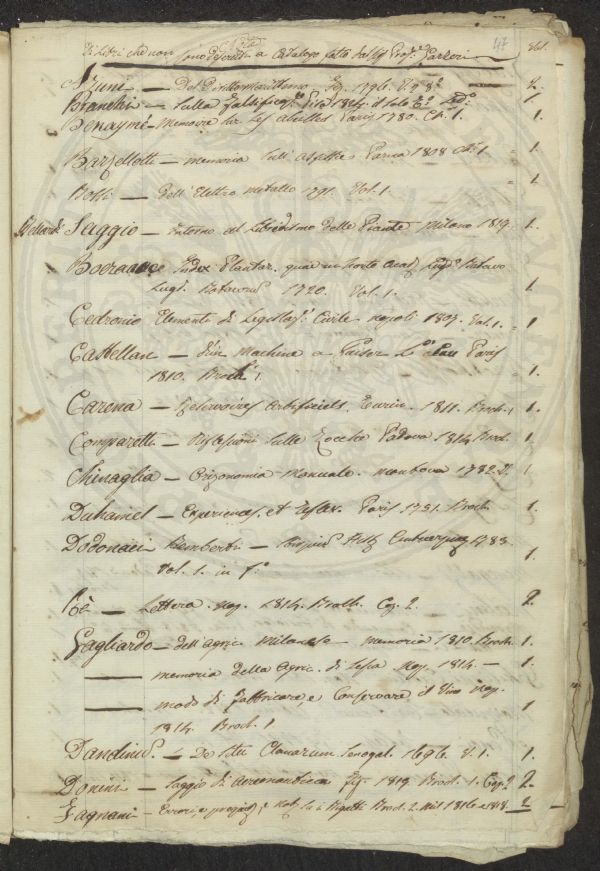 47
Libri che non sono descritti a Catalogo fatto dall' Prof.
Vol.
Azuni — Del Diritto Marittimo 1796. 8° 2.
Branchi — Sulla falsific. Pisa 1814. il solo 1.
Benayme — Memoire sur les abeilles Paris 1780. Ch. 1. 1.
Barzellotti — memoria sull' asfissie Parma 1808 Ch. 1 1.
Bossi — dell' Elettro metallo 1791. Vol. 1 1.
Bellardi Saggio — intorno al Librismo delle Piante Milano 1819 1.
Boeraave Index Plantar. quae in horto Acad. Lugd. Batavo
Lugd. Batavor. 1720. Vol. 1. 1.
Cedronio Elementi di Legislaz. Civile Napoli 1807. Vol. 1. 1
Castellan — d'un machine a Paris
1810. Broch. 1. 1.
Carena — Reservoires Artificiels. Turin. 1811. Broch. 1 1.
Comparetti — Riflessioni sulle Rocche Padova 1814 Broch. 1.
Chinaglia — Orizonomia Manuale. Mantova 1782. 1
Duhamel — Experiences. et Paris 1751. Broch. 1.
Dodonaei Remberti — Stirpium Hist. Antuerpiae 1783.
Vol. 1. in f.° 1.
Rè — Lettera. Nap. 1814. Broch. Cop. 2. 2.
Gagliardo — dell' agric. Milanese — memoria 1810. Broch. 1.
— memoria della Agric. di Sessa Nap. 1814. — 1.
— modo di fabbricare, e Conservare il Vino Nap.
1814. Broch. 1 1
Dandini. — De Situ Senogal. 1696. V. 1. 1.
Donini — Saggio di Aereonautica Fir. 1819. Broch. 1. Cop. 2 2.
Fagnani — Broch. 2. Mil. 1816 e 1818. 2